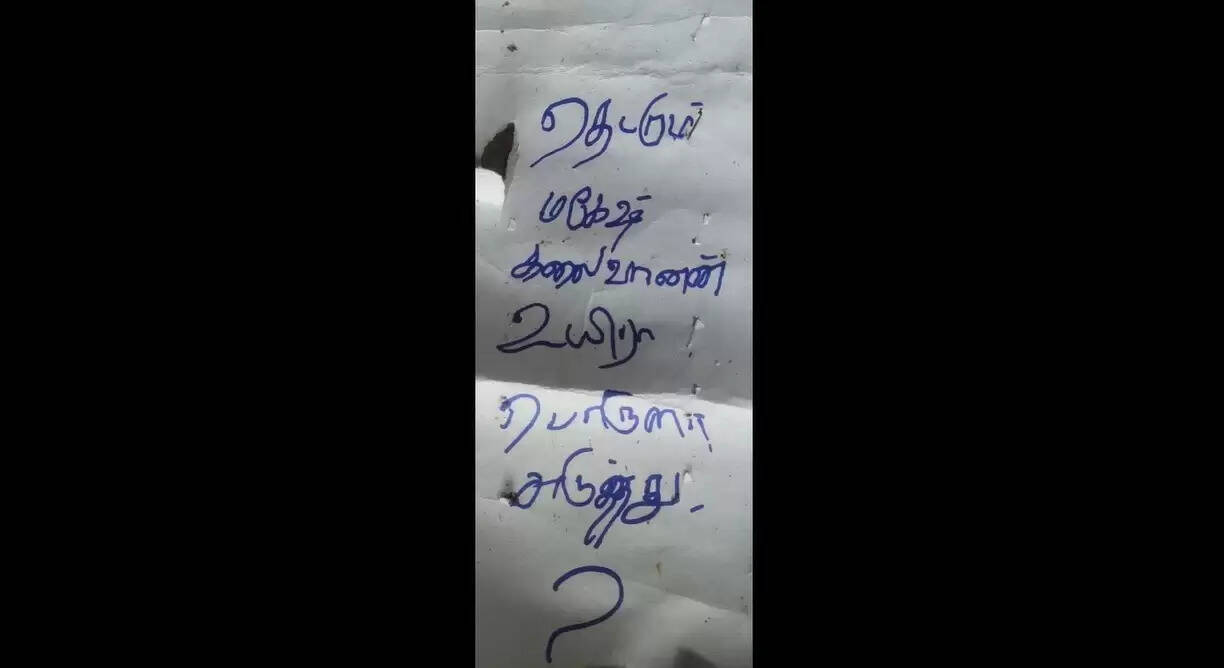 தொடரும்
மகேஷ்
கலைவாணன்
உயிரா
பொருளா
அடுத்து.
?